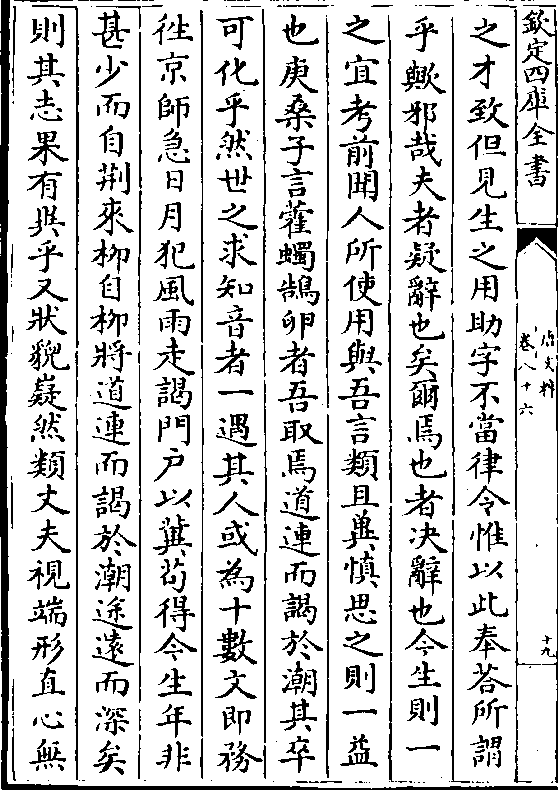 欽定四庫全書
唐文粹
卷八十六
十九
之才致但見生之用助字不當律令惟以此奉荅所謂
乎歟邪哉夫者疑辭也矣爾焉也者决辭也今生則一
之宜考前聞人所使用與吾言類且異慎思之則一益
也庚桑子言藿蠋鵠卵者吾取焉道連而謁於潮其卒
可化乎然世之求知音者一遇其人或為十數文即務
徃京師急日月犯風雨走謁門户以冀苟得今生年非
甚少而自荆來柳自柳將道連而謁於潮途逺而深矣
則其志果有異乎又狀貌嶷然類丈夫視端形直心無